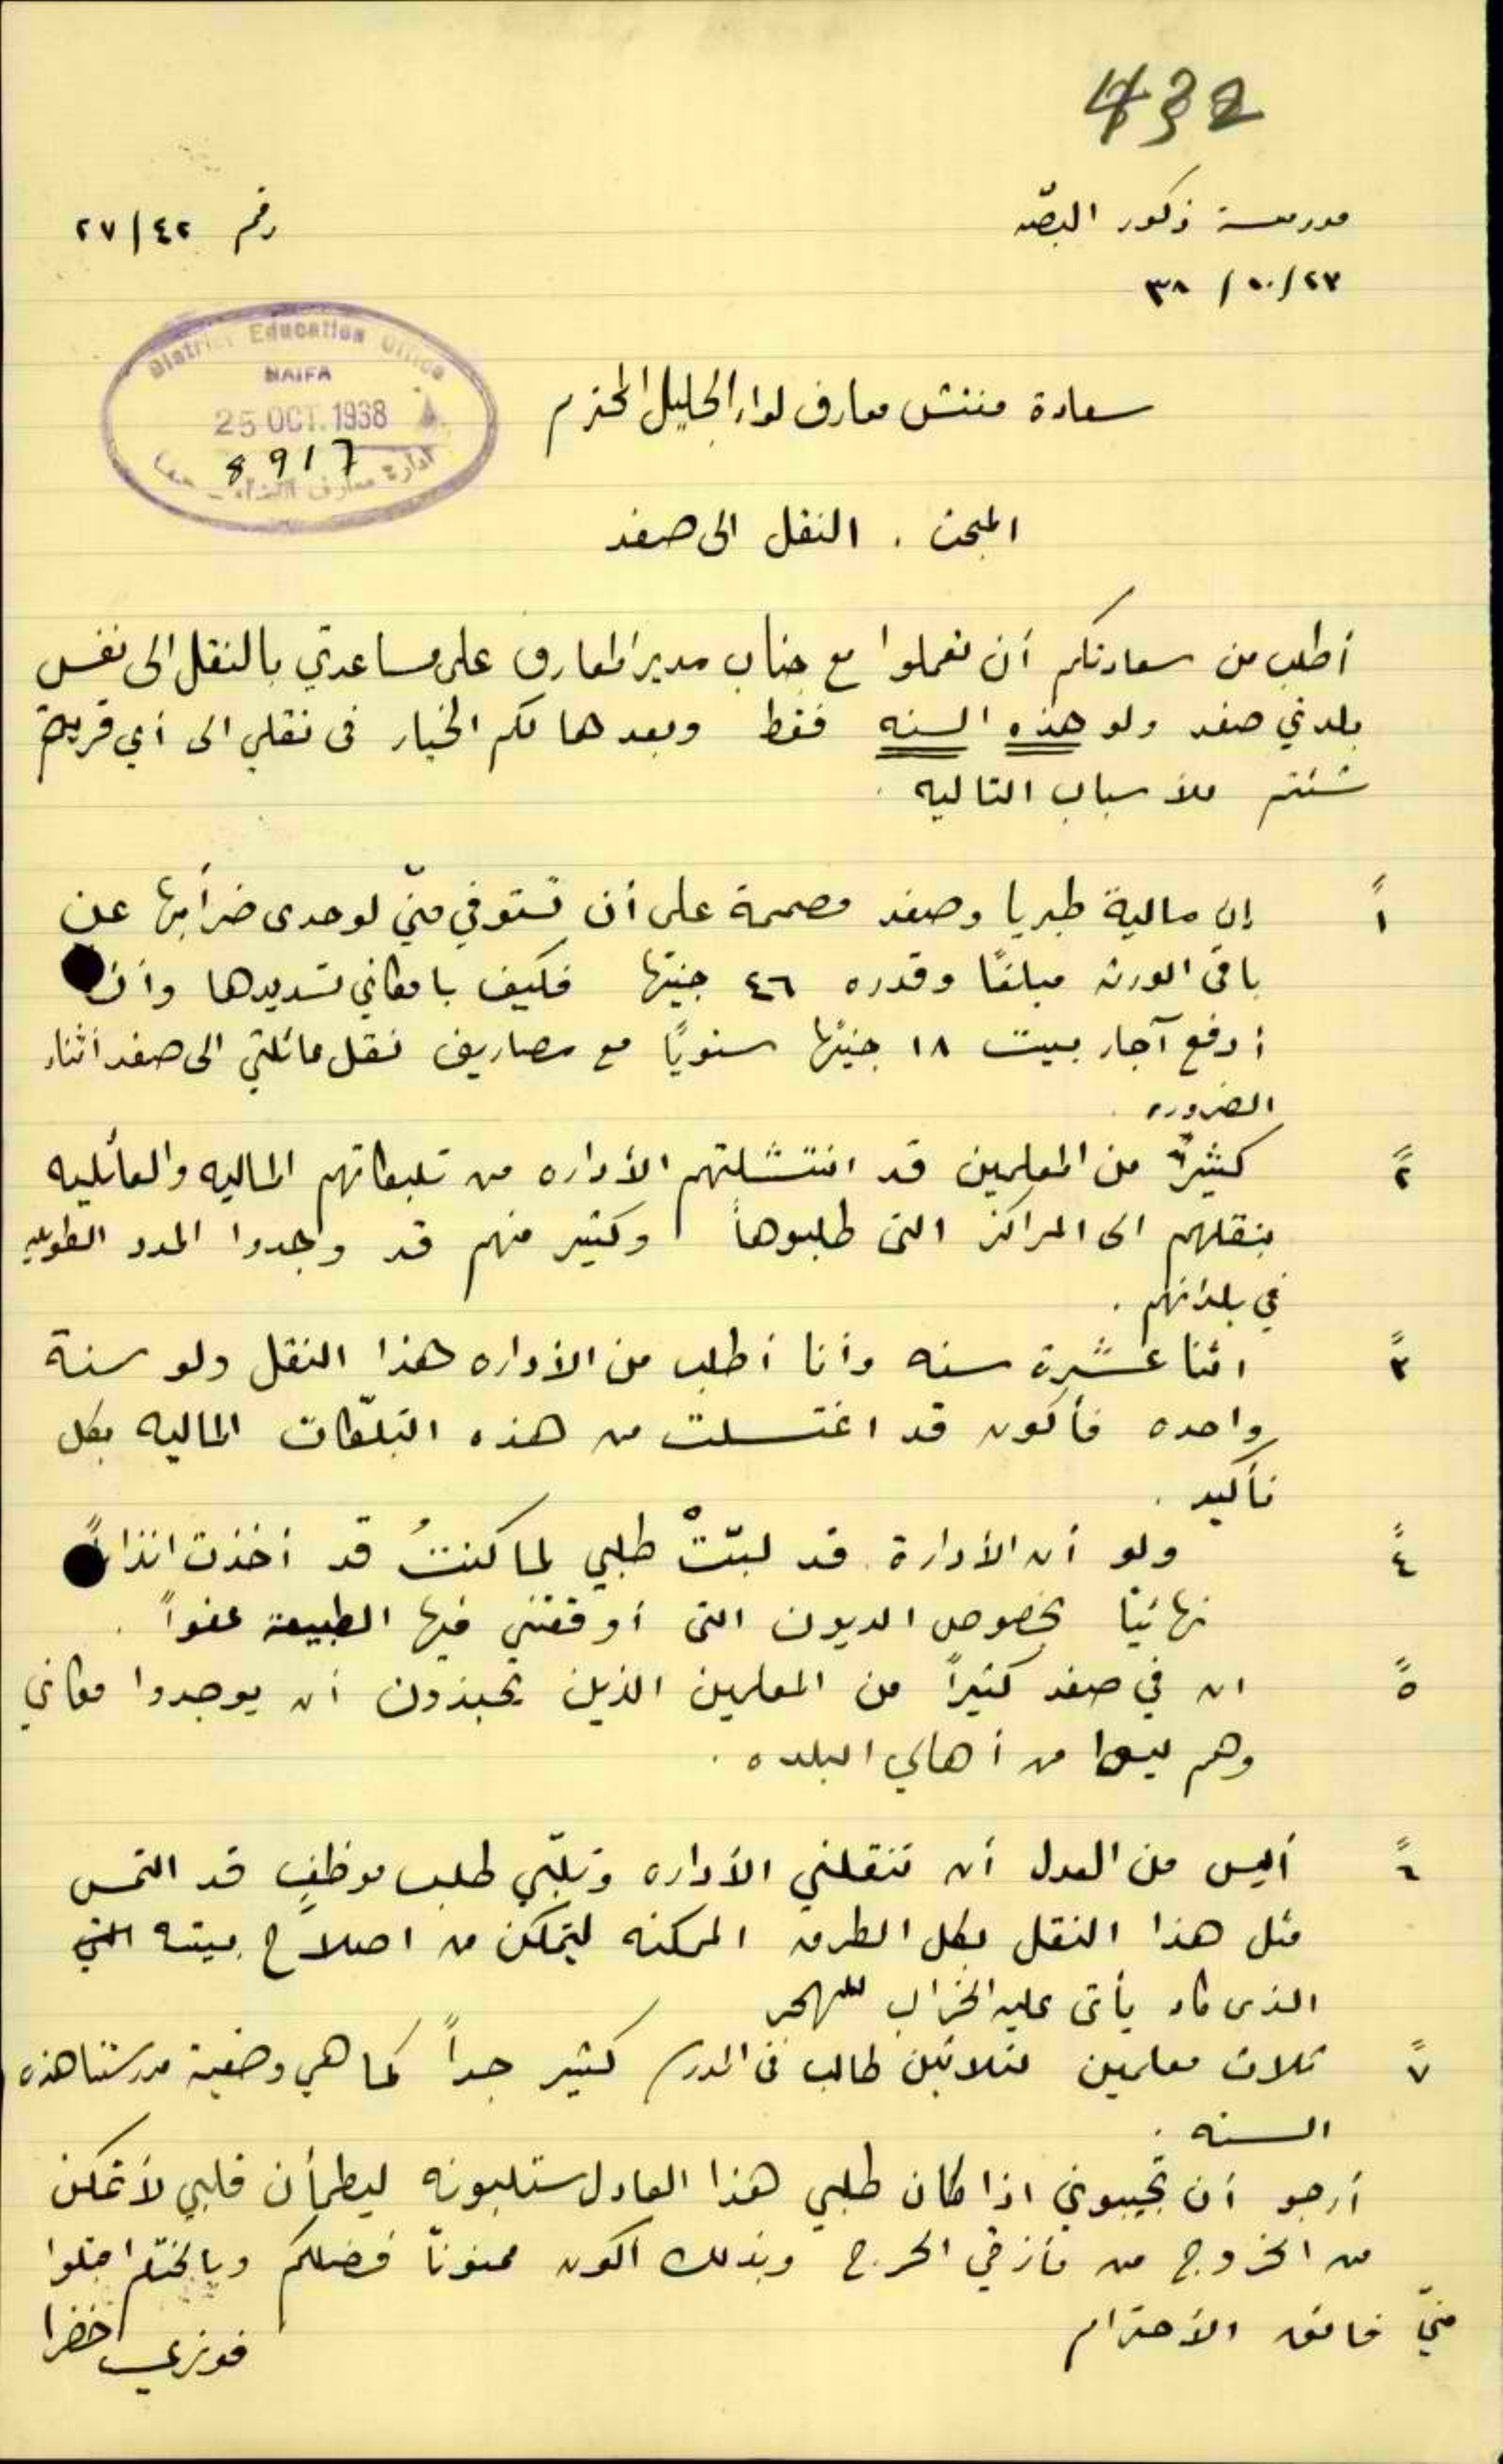 432
مدرسة ذكور البصّه
رقم ٢٧/٤٢
٢٣/١٠/٣٨
District Education Office
HAIFA
25 OCT. 1938
8917
ادارة معارف اللواء - حيفا
سعادة مفتش معارف لواء الجليل المحترم
المبحث . النقل الى صفد
أطلب من سعادتكم أن تعملوا مع جناب مدير المعارف على مساعدتي بالنقل الى نفس
بلدتي صفد ولو هذه السنه فقط وبعدها لكم الخيار في نقلي الى أي قرية
شئتم للأسباب التاليه .
١ً إن مالية طبريا وصفد مصممة على أن تستوفي منّي لوحدى ضرائبها عن
باقي الورثه مبلغًا وقدره ٤٦ جنيهًا فكيف بامكاني تسديدها وأنا
أدفع آجار بيت ١٨ جنيهًا سنويًا مع مصاريف نقل عائلتي الى صفد أثناء
الضروره .
٢ً كثيرٌ من المعلمين قد انتشلتهم الأداره من تلبكاتهم الماليه والعائليه
بنقلهم الى المراكز التي طلبوها وكثير منهم قد وجدوا المدد الطويله
في بلدانهم .
٣ً اثنا عشرة سنه وأنا أطلب من الأداره هذا النقل ولو سنة
واحده فأكون قد اغتسلت من هذه التبلّكات الماليه بكل
تأكيد .
٤ً ولو أن الأدارة قد لبّتْ طلبي لما كنتُ قد أخذت انذاراً
نهائيًا بخصوص الديون التي أوقفتني فيها الطبيعة عفواً .
٥ً ان في صفد كثيراً من المعلمين الذين يحبذون أن يوجدوا مكاني
وهم ليسوا من أهالي البلده .
٦ً أليس من العدل أن تنقلني الأداره وتلبّي طلب موظفٍ قد التمس
مثل هذا النقل بكل الطرق الممكنه ليتمكن من اصلاح بيته التي
الذى كاد يأتى عليه الخراب
٧ً ثلاث معلمين لثلاثين طالب في المدرسة كثير جداً كما هي وضعية مدرستنا هذه
السنه .
أرجو أن تجيبوني اذا كان طلبي هذا العادل ستلبونه ليطمأن قلبي لأتمكن
من الخروج من مأزقي الحرج وبذلك اكون ممنونًا فضلكم وبالختام اقبلوا
منّي فائق الأحترام
فوزي خضرا